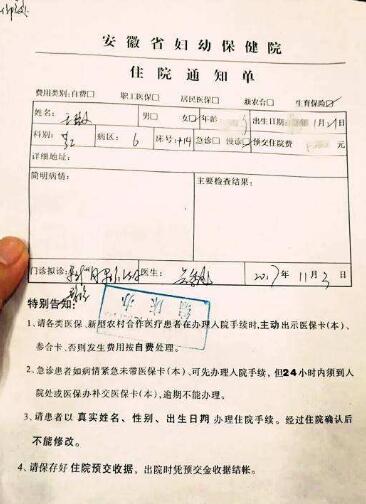 安徽省妇幼保健院
住院通知单
费用类别:自费□ 职工医保□ 居民医保□ 新农合□ 生育保险☑
姓名: 男□ 女☑ 年龄 出生日期: 1月21日
科别: 病区: 6 床号:414 急诊□ 慢诊☑ 预交住院费 元
详细地址:
简明病情: 主要检查结果:
门诊拟诊: 医生: 2017年11月3
特别告知:
1、请各类医保、新型农村合作医疗患者在办理入院手续时,主动出示医保卡(本)、
参合卡、否则发生费用按自费处理。
2、急诊患者如病情紧急未带医保卡(本)、可先办理入院手续,但24小时内须到入
院处或医保办补交医保卡(本),逾期不能办理。
3、请患者以真实姓名、性别、出生日期办理住院手续。经过住院确认后
不能修改。
4、请保存好住院预交收据,出院时凭预交金收据结帐。